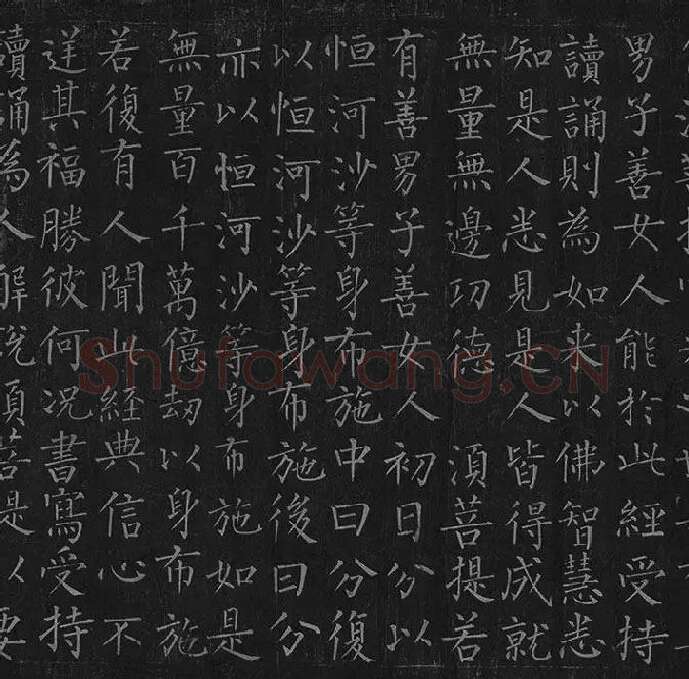 男子善女人能於此經受持
讀誦則為如来以佛智慧悉
知是人悉見是人皆得成就
無量無邊功德湏菩提若
有善男子善女人初日分以
恒河沙等身布施中日分復
以恒河沙等身布施後日分
亦以恒河沙等身布施如是
無量百千萬億劫以身布施
若復有人聞此經典信心不
逆其福勝彼何况書寫受持
讀誦為人解說湏菩提以要
Shufawang.CN